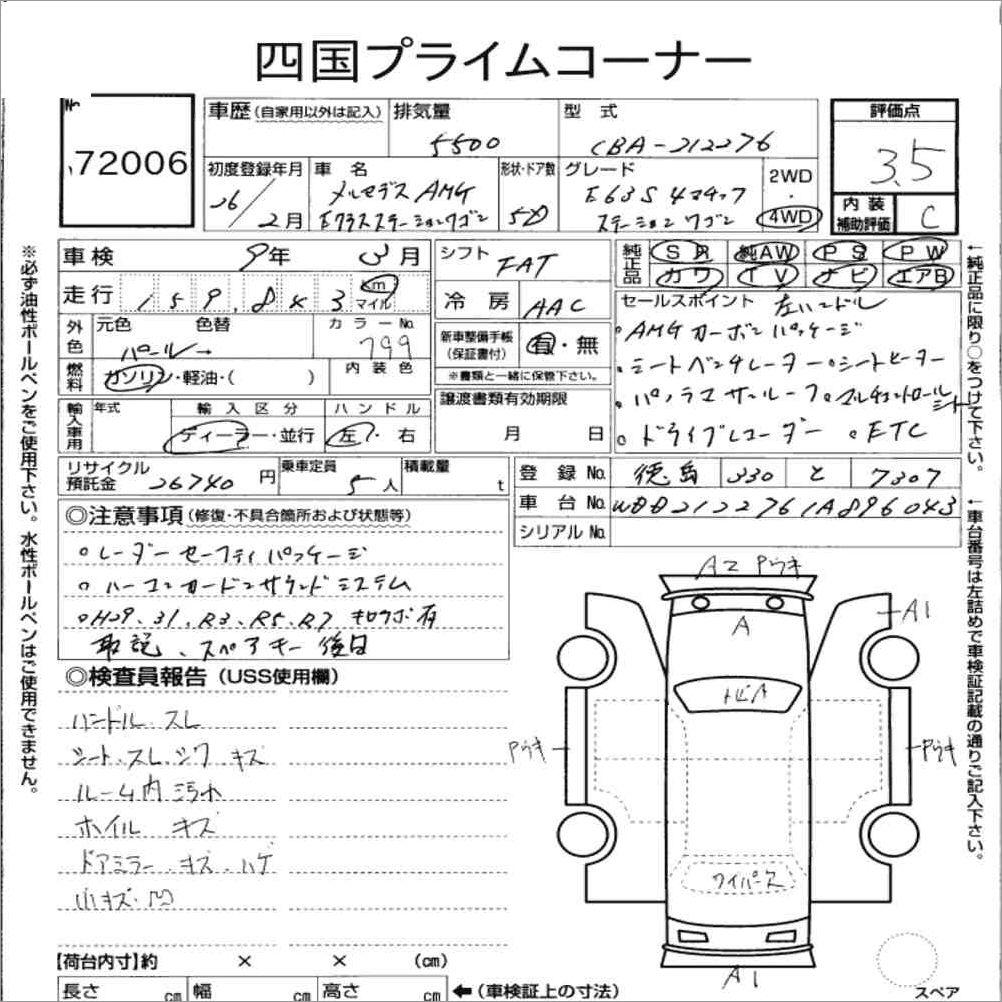 四国プライムコーナー
№ 72006
車歴 (自家用以外は記入)
排気量 5500
型式 CBA-212276
評価点 3.5
初度登録年月 26/2月
車名 メルセデスAMG
Eクラスステーションワゴン
形状・ドア数 5D
グレード E63S 4マチック
ステーションワゴン
2WD・4WD
内装補助評価 C
車検 9年 3月
シフト FAT
純正品 SR 純AW PS PW
カワ TV ナビ エアB
走行 159,843 km マイル
冷房 AAC
セールスポイント 左ハンドル
。AMGカーボンパッケージ
外色 元色 色替 パール→
カラーNo. 799
新車整備手帳(保証書付) 有・無
※書類と一緒に保管下さい。
・シートベンチレーター・シートヒーター
燃料 ガソリン・軽油・( )
内装色
・パノラマサルーフ 。マルチコントロールシート
譲渡書類有効期限
月 日
輸入車用 年式
輸入区分 ディーラー・並行
ハンドル 左・右
。ドライブレコーダー 。ETC
リサイクル預託金 26740円
乗車定員 5人
積載量 t
登録No. 徳島 330 と 7307
車台No. WDD2122761A896043
シリアルNo.
◎注意事項(修復・不具合箇所および状態等)
。レーダーセーフティパッケージ
。ハーマンカードンサウンドシステム
。H29.31.R3.R5.R7 キロクボ有
取説、スペアキー後日
◎検査員報告(USS使用欄)
ハンドル スレ
シート.スレ.シワ キズ
ルーム内 汚れ
ホイル キズ
ドアミラー.キズ.ハゲ
小キズ.凹
A2 Pウキ
A
A1
トビA
Pウキ
Pウキ
ワイパーズ
A1
スペア
【荷台内寸】約 × × (cm)
長さ cm 幅 cm 高さ cm ←(車検証上の寸法)
※必ず油性ボールペンをご使用下さい。水性ボールペンはご使用できません。
←純正品に限り○をつけて下さい。
←車台番号は左詰めで車検証記載の通りご記入下さい。